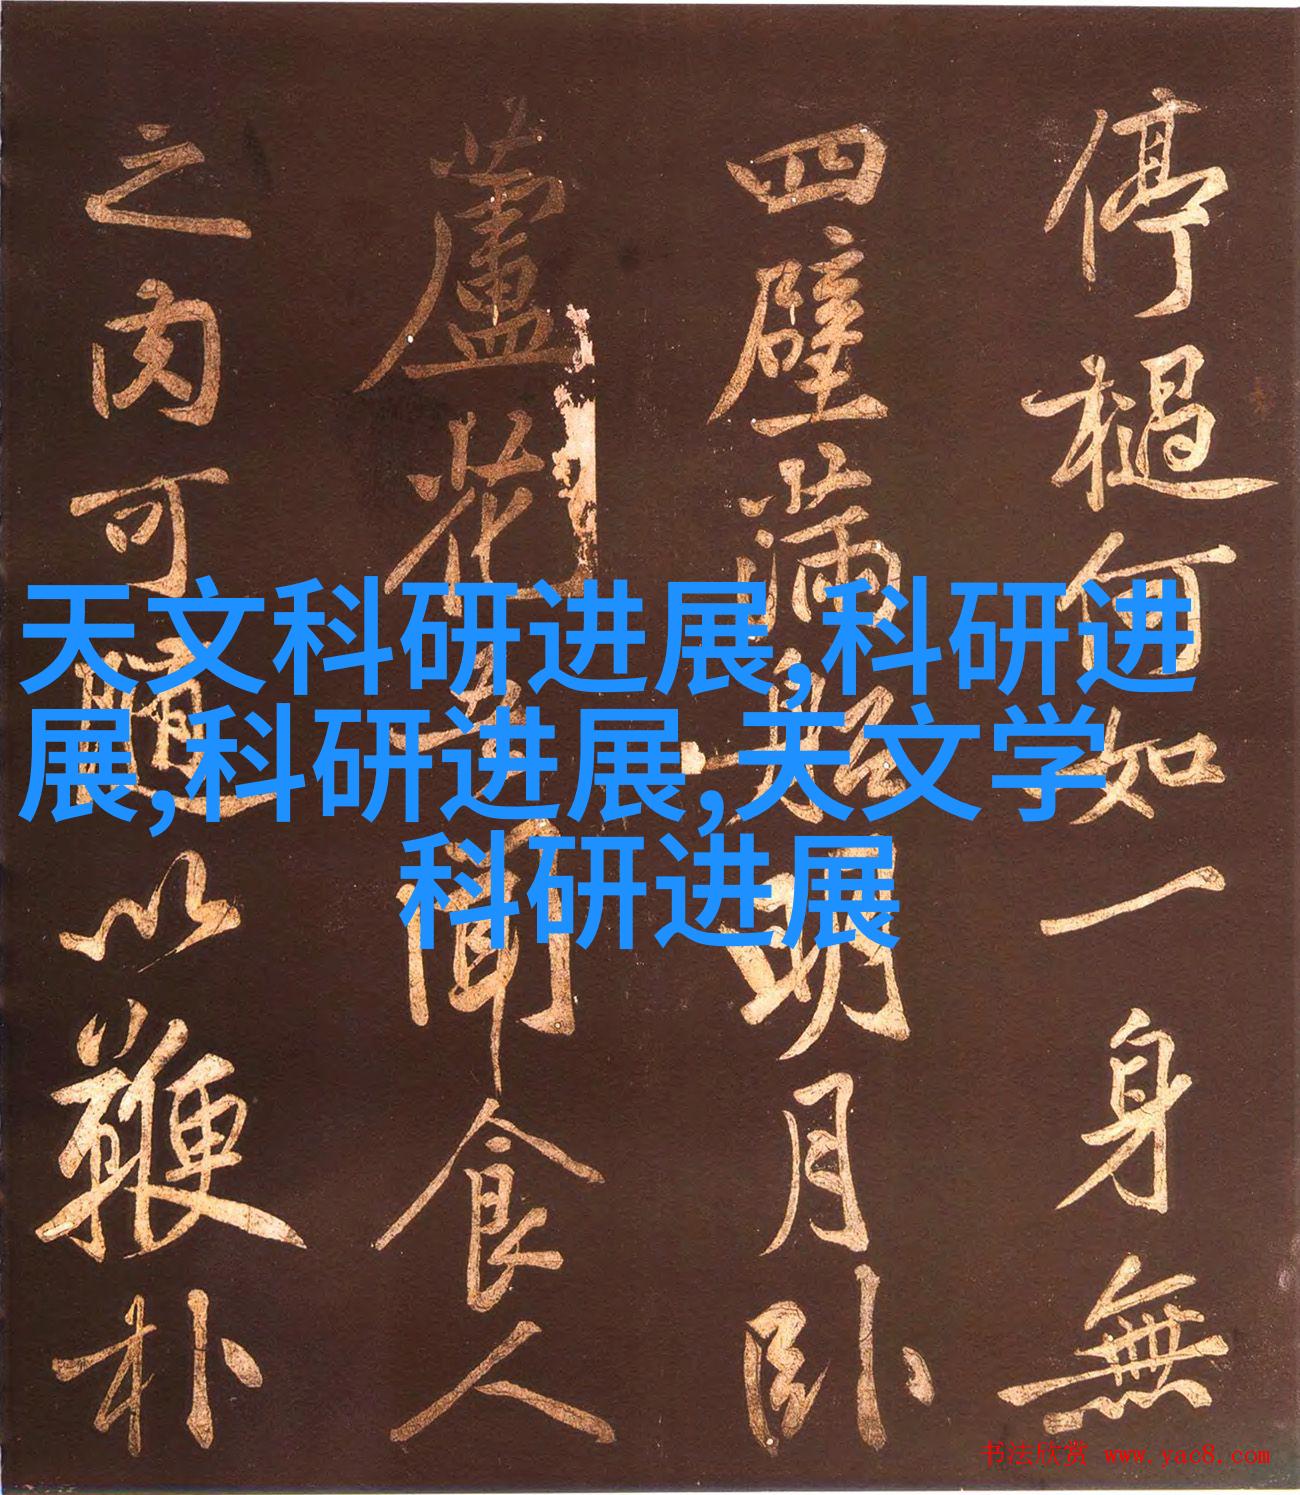 停檛何如一身無
四壁滿船明月卧
蘆花吾聞食人
之肉可隨以鞭朴
天文科研进展,科研进
展,科研进展,天文学
科研进展
书法欣赏 www.yac8.com